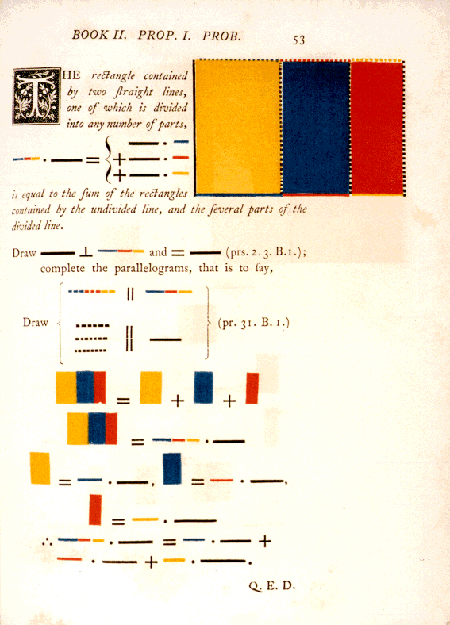 BOOK II. PROP. I. PROB.
53
THE rectangle contained
by two straight lines,
one of which is divided
into any number of parts,
· = { · + · + ·
is equal to the sum of the rectangles
contained by the undivided line, and the several parts of the
divided line.
Draw ⊥ and = (prs. 2. 3. B. 1.);
complete the parallelograms, that is to say,
Draw { || || } (pr. 31. B. 1.)
= + +
= ·
= · , = · ,
= ·
∴ · = · +
· + · .
Q. E. D.